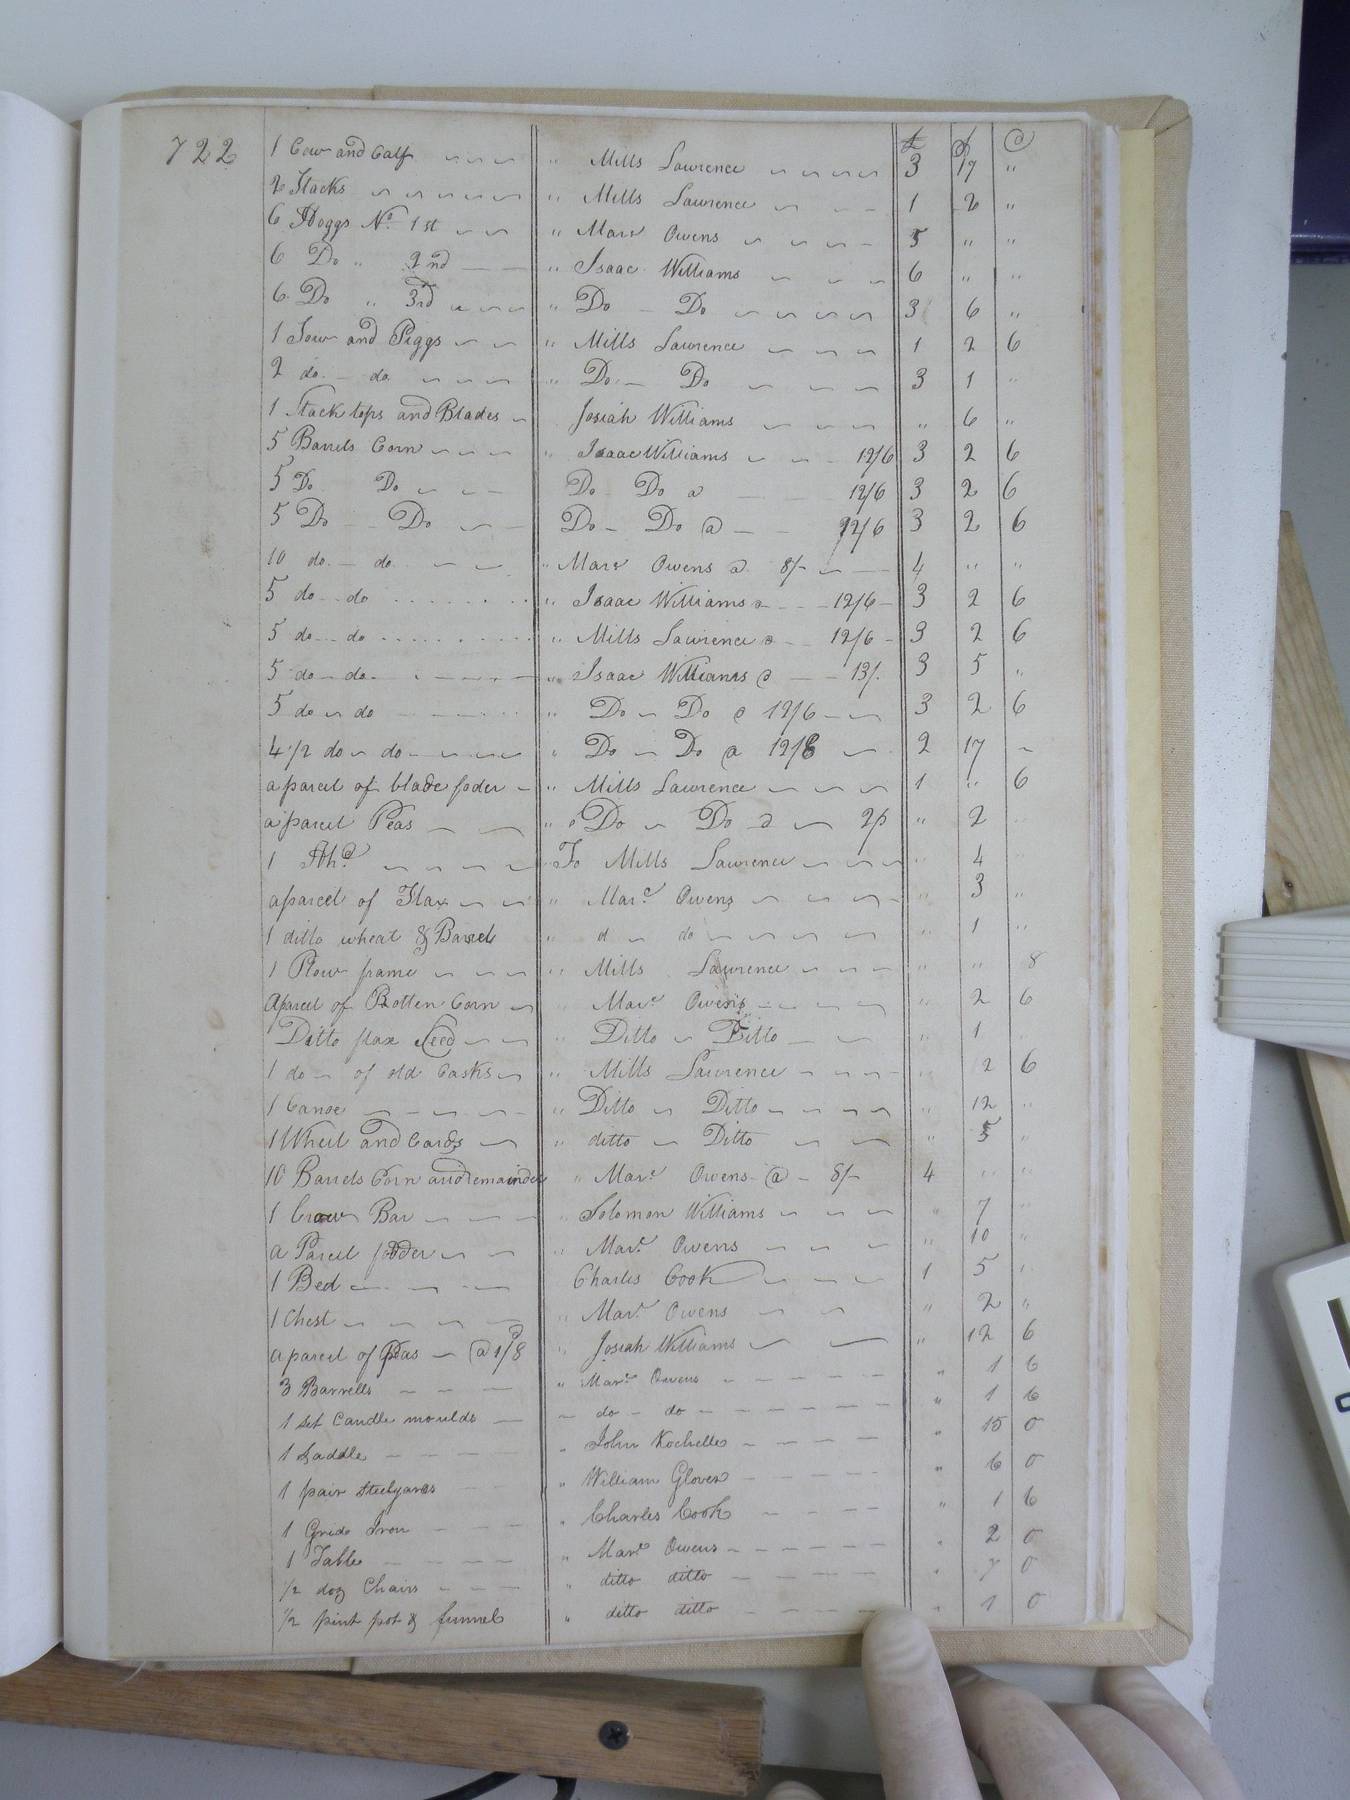 722
£ s d
1 Cow and Calf " Mills Lawrence 3 17 "
2 Stacks " Mills Lawrence 1 2 "
6 Hoggs No. 1st " Mary Owens 5 " "
6 Do " 2nd " Isaac Williams 6 " "
6 Do " 3rd " Do Do 3 6 "
1 Sow and Piggs " Mills Lawrence 1 2 6
2 do. do. " Do. Do 3 1 "
1 Stack tops and Blades Josiah Williams " 6 "
5 Barrels Corn " Isaac Williams 12/6 3 2 6
5 Do Do Do Do a 12/6 3 2 6
5 Do Do Do Do @ 12/6 3 2 6
10 do. do. " Mary Owens a 8/ 4 " "
5 do do " Isaac Williams a 12/6 3 2 6
5 do do " Mills Lawrence a 12/6 3 2 6
5 do do " Isaac Williams @ 13/. 3 5 "
5 do do " Do Do @ 12/6 3 2 6
4 1/2 do do " Do Do a 12/8 2 17
a parcel of blade foder " Mills Lawrence 1 " 6
a parcel Peas " Do Do a 2p " 2
1 Hhd To Mills Lawrence " 4
a parcel of Flax " Mary Owens " 3 "
1 ditto wheat & Barrel " d do " 1 "
1 Plow frame " Mills Lawrence " " 8
a parcel of Rotten Corn " Mary Owens " 2 6
Ditto flax Seed " Ditto Ditto " 1
1 do of old Casks " Mills Lawrence " 2 6
1 Canoe " Ditto Ditto " 12 "
1 Wheel and Cards " ditto Ditto " 5 "
10 Barrels Corn and remainder " Mary Owens @ 8/ 4 " "
1 Crow Bar " Solomon Williams " 7 "
a Parcel fodder " Mary Owens " 10 "
1 Bed Charles Cook 1 5 "
1 Chest " Mary Owens " 2 "
a parcel of Peas @ 1/8 " Josiah Williams " 12 6
3 Barrells " Mary Owens " 1 6
1 set Candle moulds do do " 1 6
1 Saddle " John Rochelle " 15 0
1 pair steelyards " William Glover " 6 0
1 Grid Iron " Charles Cook " 1 6
1 Table " Mary Owens " 2 0
1/2 doz Chairs " ditto ditto " 7 0
1/2 pint pot & funnel " ditto ditto " 1 0